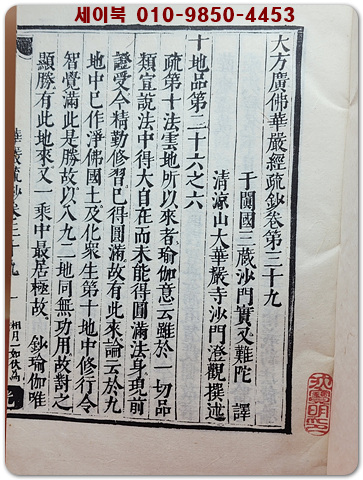 세이북 010-9850-4453
大方廣佛華嚴經疏鈔卷第三十九
于闐國三藏沙門實叉難陀 譯
清涼山大華嚴寺沙門澄觀撰述
十地品第二十六之六
疏第十法雲地所以來者瑜伽意云雖於一切品
類宣說法中得大自在而未能得圓滿法身現前
證受今精勤修習已得圓滿故有此來論云於九
地中已作淨佛國土及化衆生第十地中修行令
智覺滿此是勝故以八九二地同無功用故對之
顯勝有此地來又一乘中最居極故 鈔瑜伽唯
華嚴疏鈔卷三十九 一